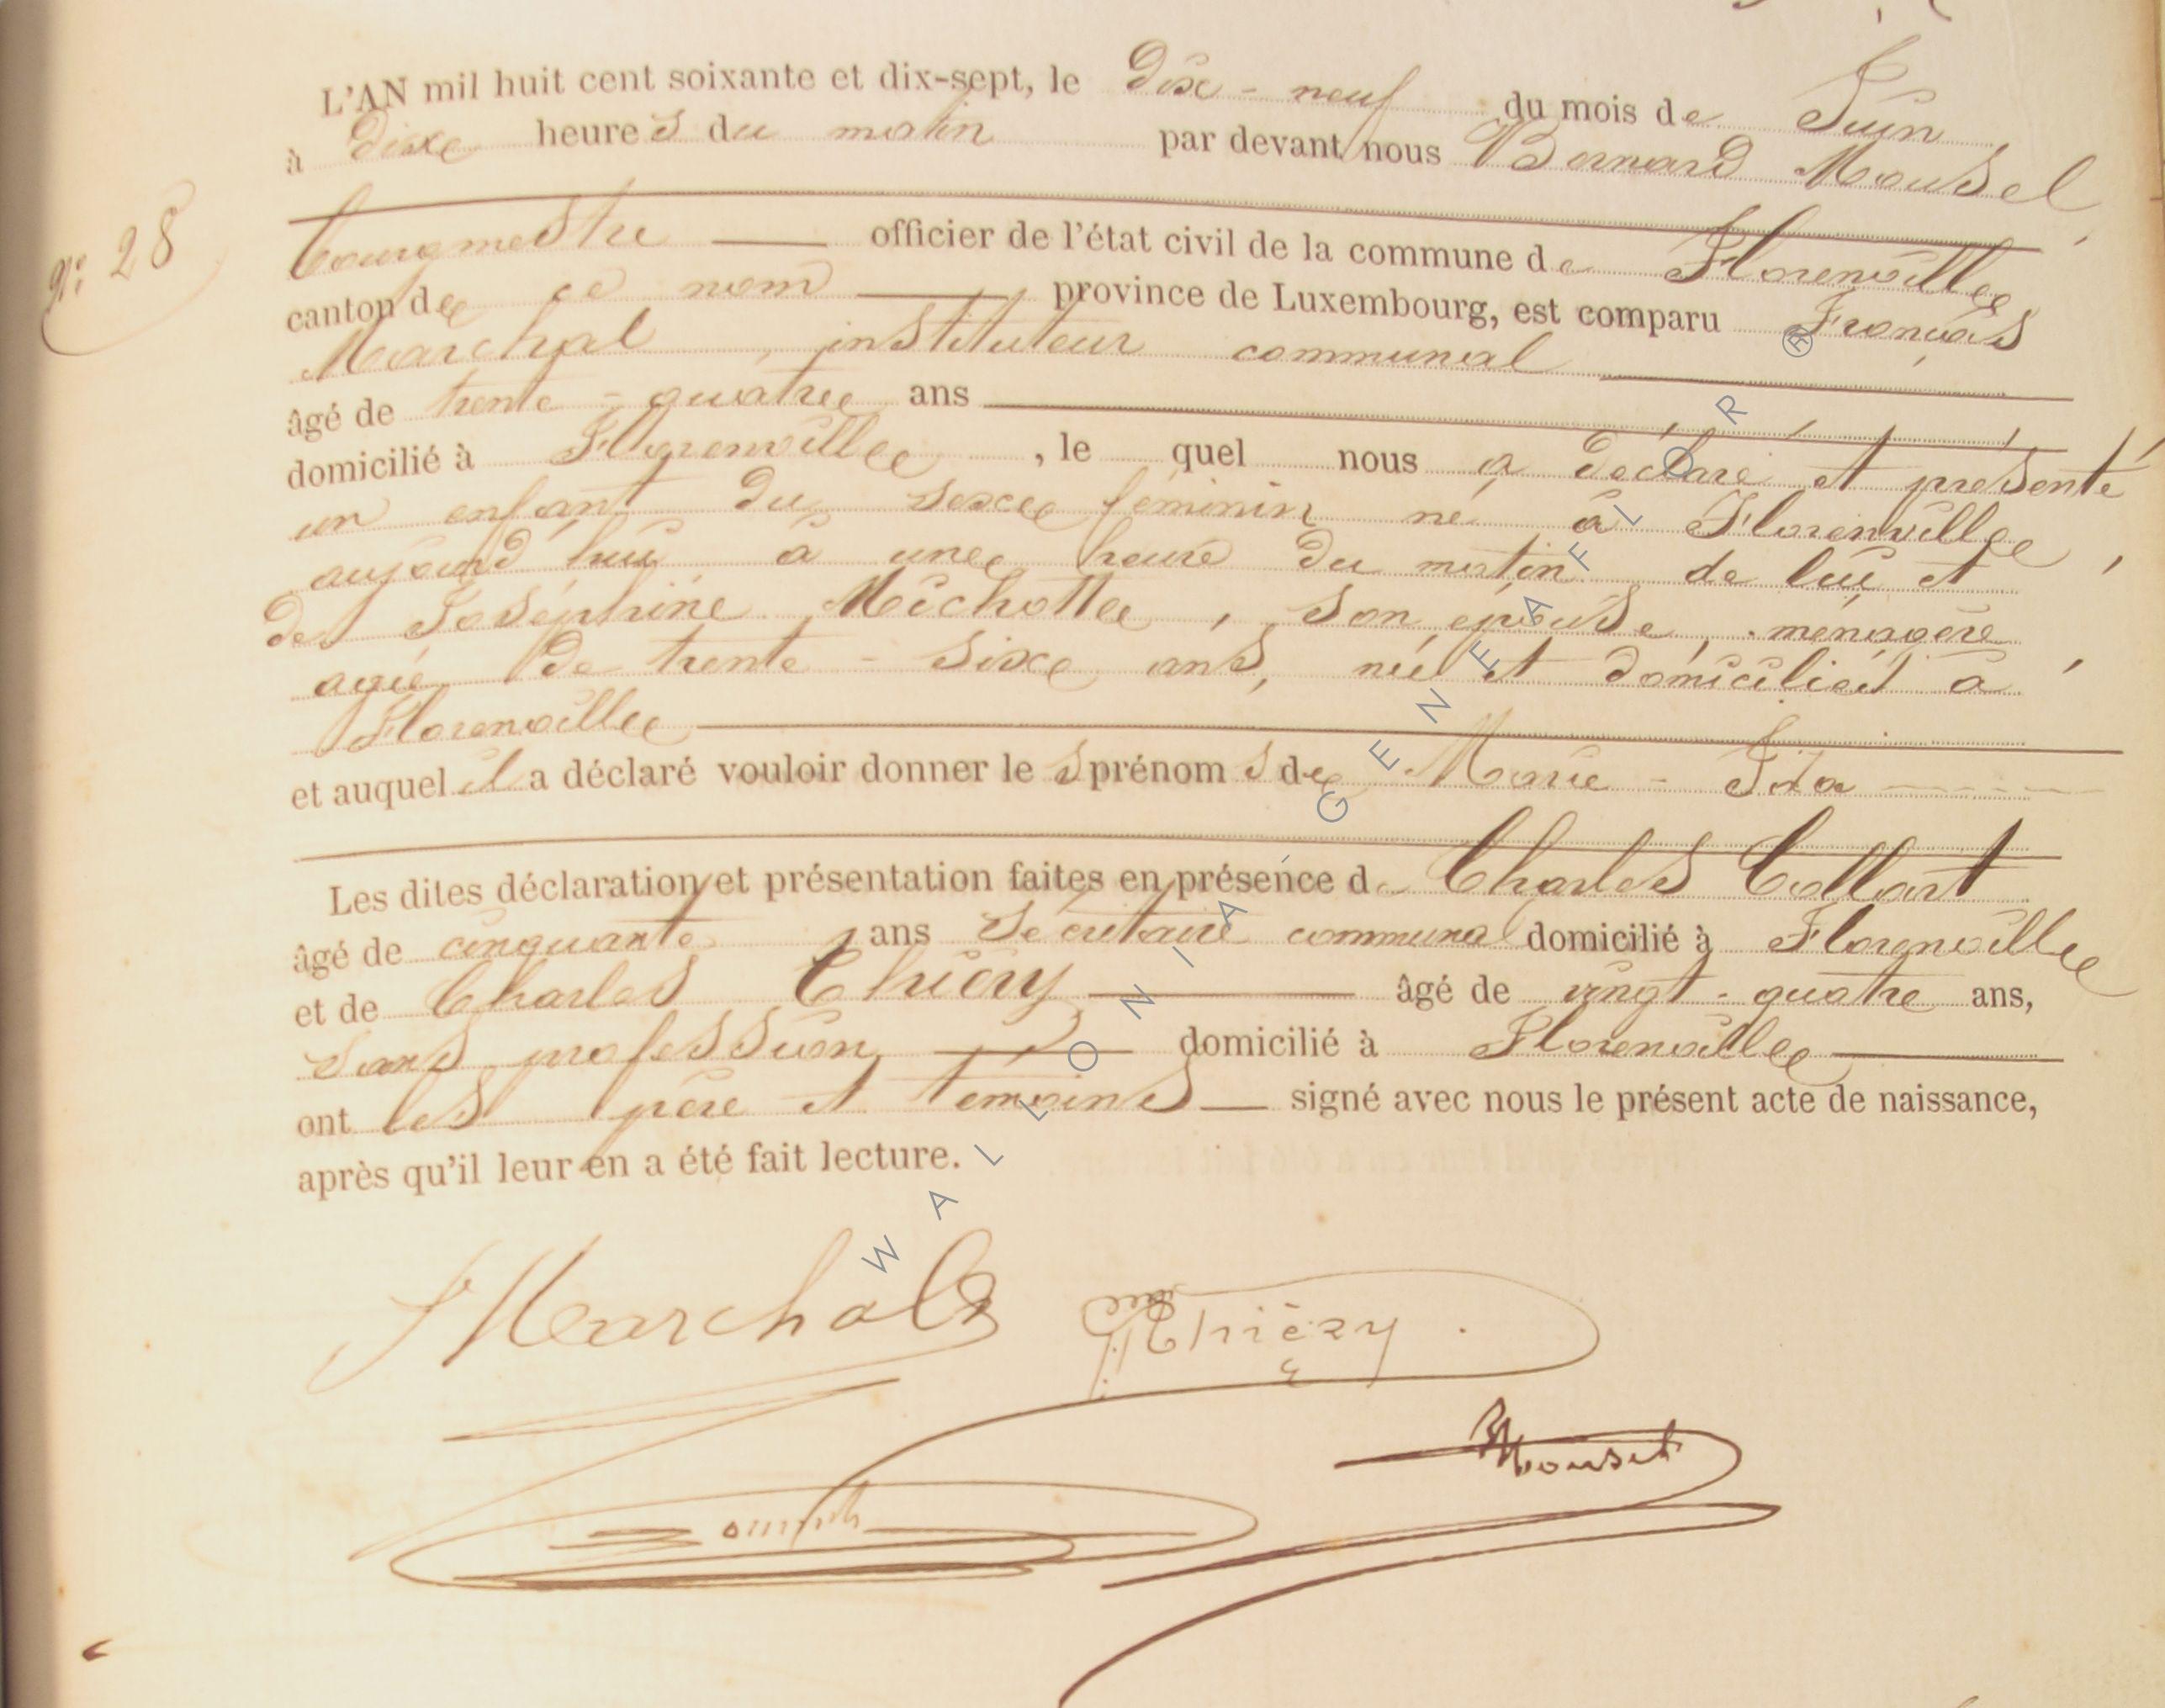 L'AN mil huit cent soixante et dix-sept, le dix-neuf du mois de Juin
à dixe heures du matin par devant nous Bernard Mousel,
bourgmestre officier de l'état civil de la commune de Florenville
N° 28
canton de ce nom province de Luxembourg, est comparu François
Marchal, instituteur communal
âgé de trente-quatre ans
domicilié à Florenville, le quel nous a déclaré et présenté
un enfant du sexe féminin né à Florenville,
aujourd'hui à une heure du matin de lui et
de Joséphine Michotte, son épouse, ménagère
agée de trente-sixe ans, née et domiciliée à
Florenville
et auquel il a déclaré vouloir donner les prénoms de Marie-
Les dites déclaration et présentation faites en présence de Charles Collart
âgé de cinquante ans Secrétaire communal domicilié à Florenville
et de Charles Thiéry âgé de vingt-quatre ans,
Sans profession, domicilié à Florenville
ont les père et témoins signé avec nous le présent acte de naissance,
après qu'il leur en a été fait lecture.
F Marchal Thiéry
Mousel
WALLONIA - GENEAFLOR ®